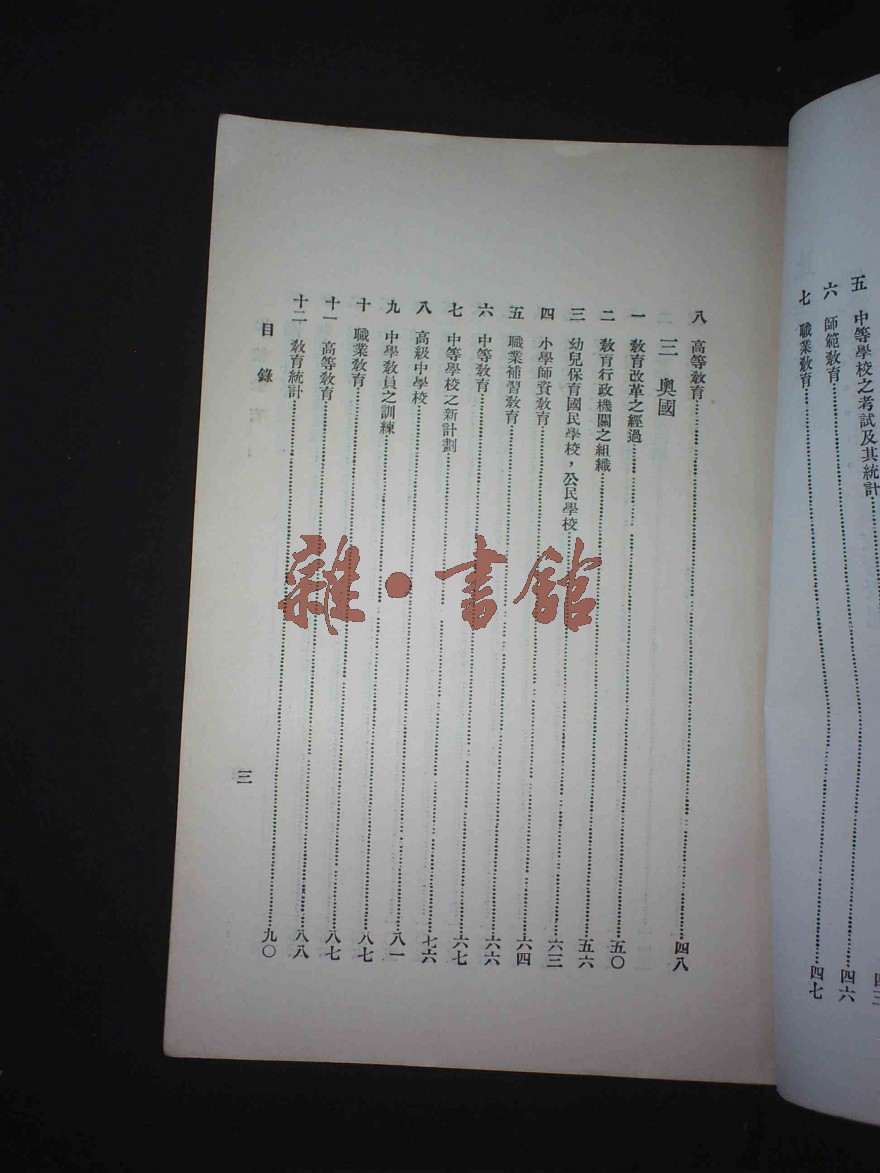 五 中等學校之考試及其統計
六 師範教育……四六
七 職業教育……四七
八 高等教育……四八
三 奧國
一 教育改革之經過……五〇
二 教育行政機關之組織……五六
三 幼兒保育國民學校，公民學校……六三
四 小學師資教育……六四
五 職業補習教育……六六
六 中等教育……六七
七 中等學校之新計劃……七六
八 高級中學校……八一
九 中學教員之訓練……八七
十 職業教育……八七
十一 高等教育……八八
十二 教育統計……九〇
目錄
三
雜·書館